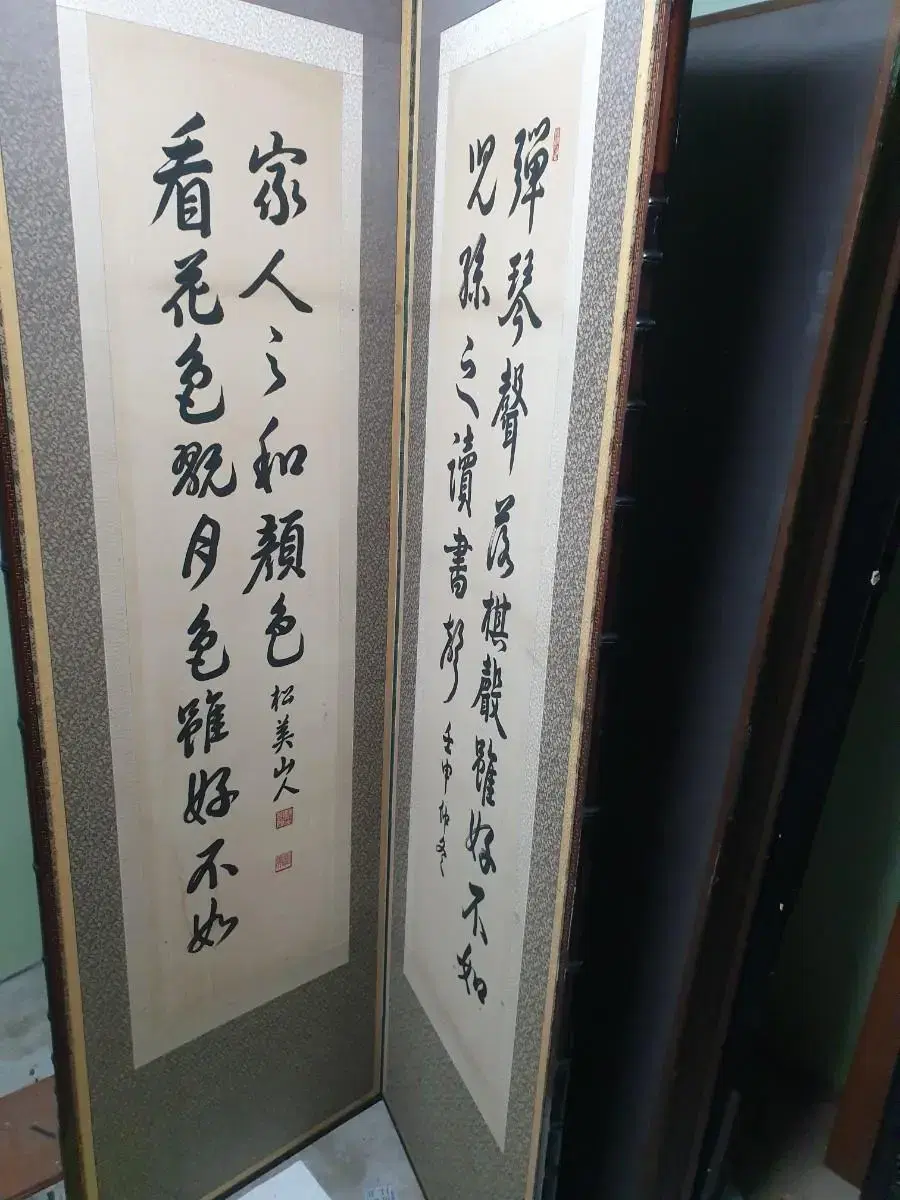 彈琴聲落棋聲雖好不如
兒孫之讀書聲 壬申仲冬
看花色翫月色雖好不如
家人之和顔色 松美山人